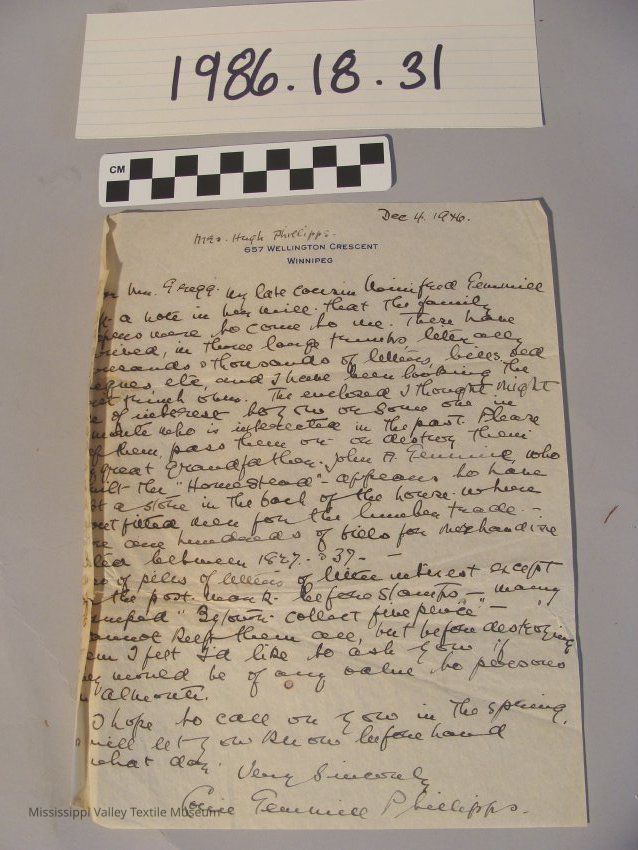 1986.18.31
CM
Dec 4. 1946.
Mrs. Hugh Phillipps.
657 WELLINGTON CRESCENT
WINNIPEG
Mr. Gregg. My late cousin Winifred Gemmill
a note in her will that the family
were to come to me. There have
in three large trunks, literally
thousands of letters, bills, deed
etc, and I have been looking the
The enclosed I thought might
of interest to you or some one in
who is interested in the past. Please
them, pass them on or destroy them
great Grandfather. John A. Gemmill, who
the "Homestead" - appears to have
a store in the back of the house. where
fitted men for the lumber trade. -
are hundreds of bills for merchandise
between 1827. - 37 -
of piles of letters of little interest except
the post mark. before stamps - many
collect five pence" -
cannot keep them all, but before destroying
I felt I'd like to ask you if
would be of any value to persons
almonte.
I hope to call on you in the spring.
will let you know beforehand
what day.
Very Sincerely
Gemmill Phillipps.
Mississippi Valley Textile Museum